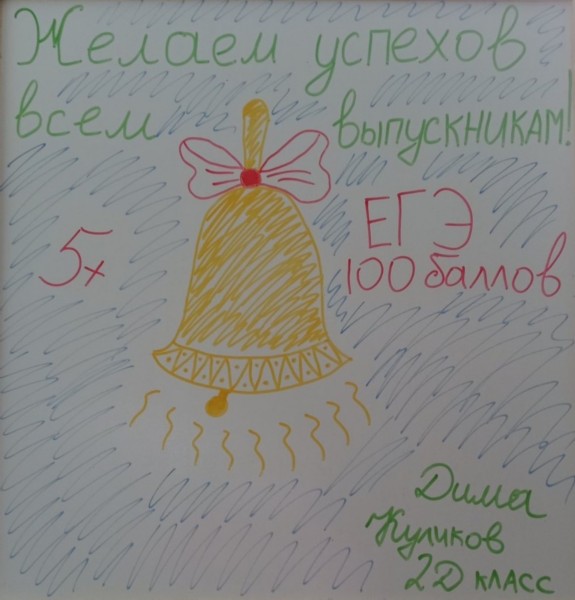 Желаем успехов
всем выпускникам!
5х
ЕГЭ
100 баллов
Дима
Куликов
2D класс